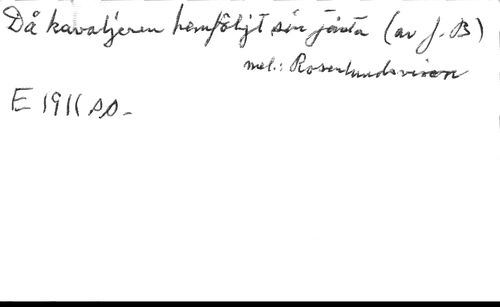 Då kavaljeren hemföljt sin jänta (av J. B)
mel.: Rosenlundsvisan
E 1911 ss.